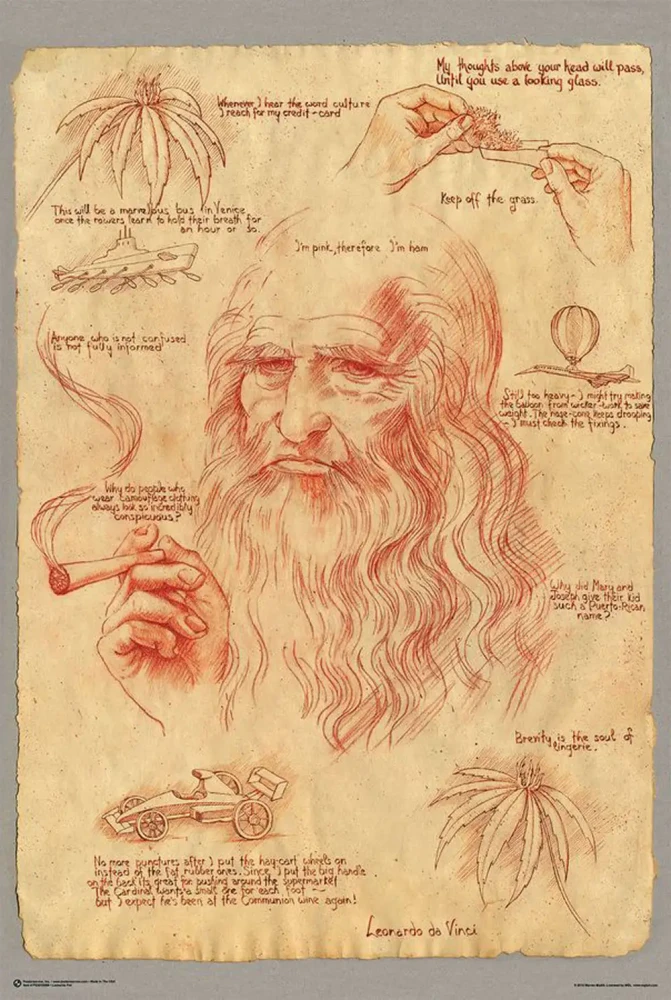 My thoughts above your head will pass,
Until you use a looking glass.
Whenever I hear the word culture
I reach for my credit-card
Keep off the grass.
This will be a marvellous bus in Venice
once the rowers learn to hold their breath for
an hour or so.
I'm pink, therefore I'm ham
Anyone who is not confused
is not fully informed
Still too heavy - I might try making
the baloon from wicker-work to save
weight. The nose-cone keeps drooping
- I must check the fixings.
Why do people who
wear camouflage clothing
always look so incredibly
conspicuous?
Why did Mary and
Joseph give their kid
such a Puerto-Rican
name?
Brevity is the soul of
lingerie.
No more punctures after I put the hay-cart wheels on
instead of the fat rubber ones. Since I put the big handle
on the back its great for pushing around the supermarket
The Cardinal wants a small one for each foot -
but I expect he's been at the Communion wine again!
Leonardo da Vinci